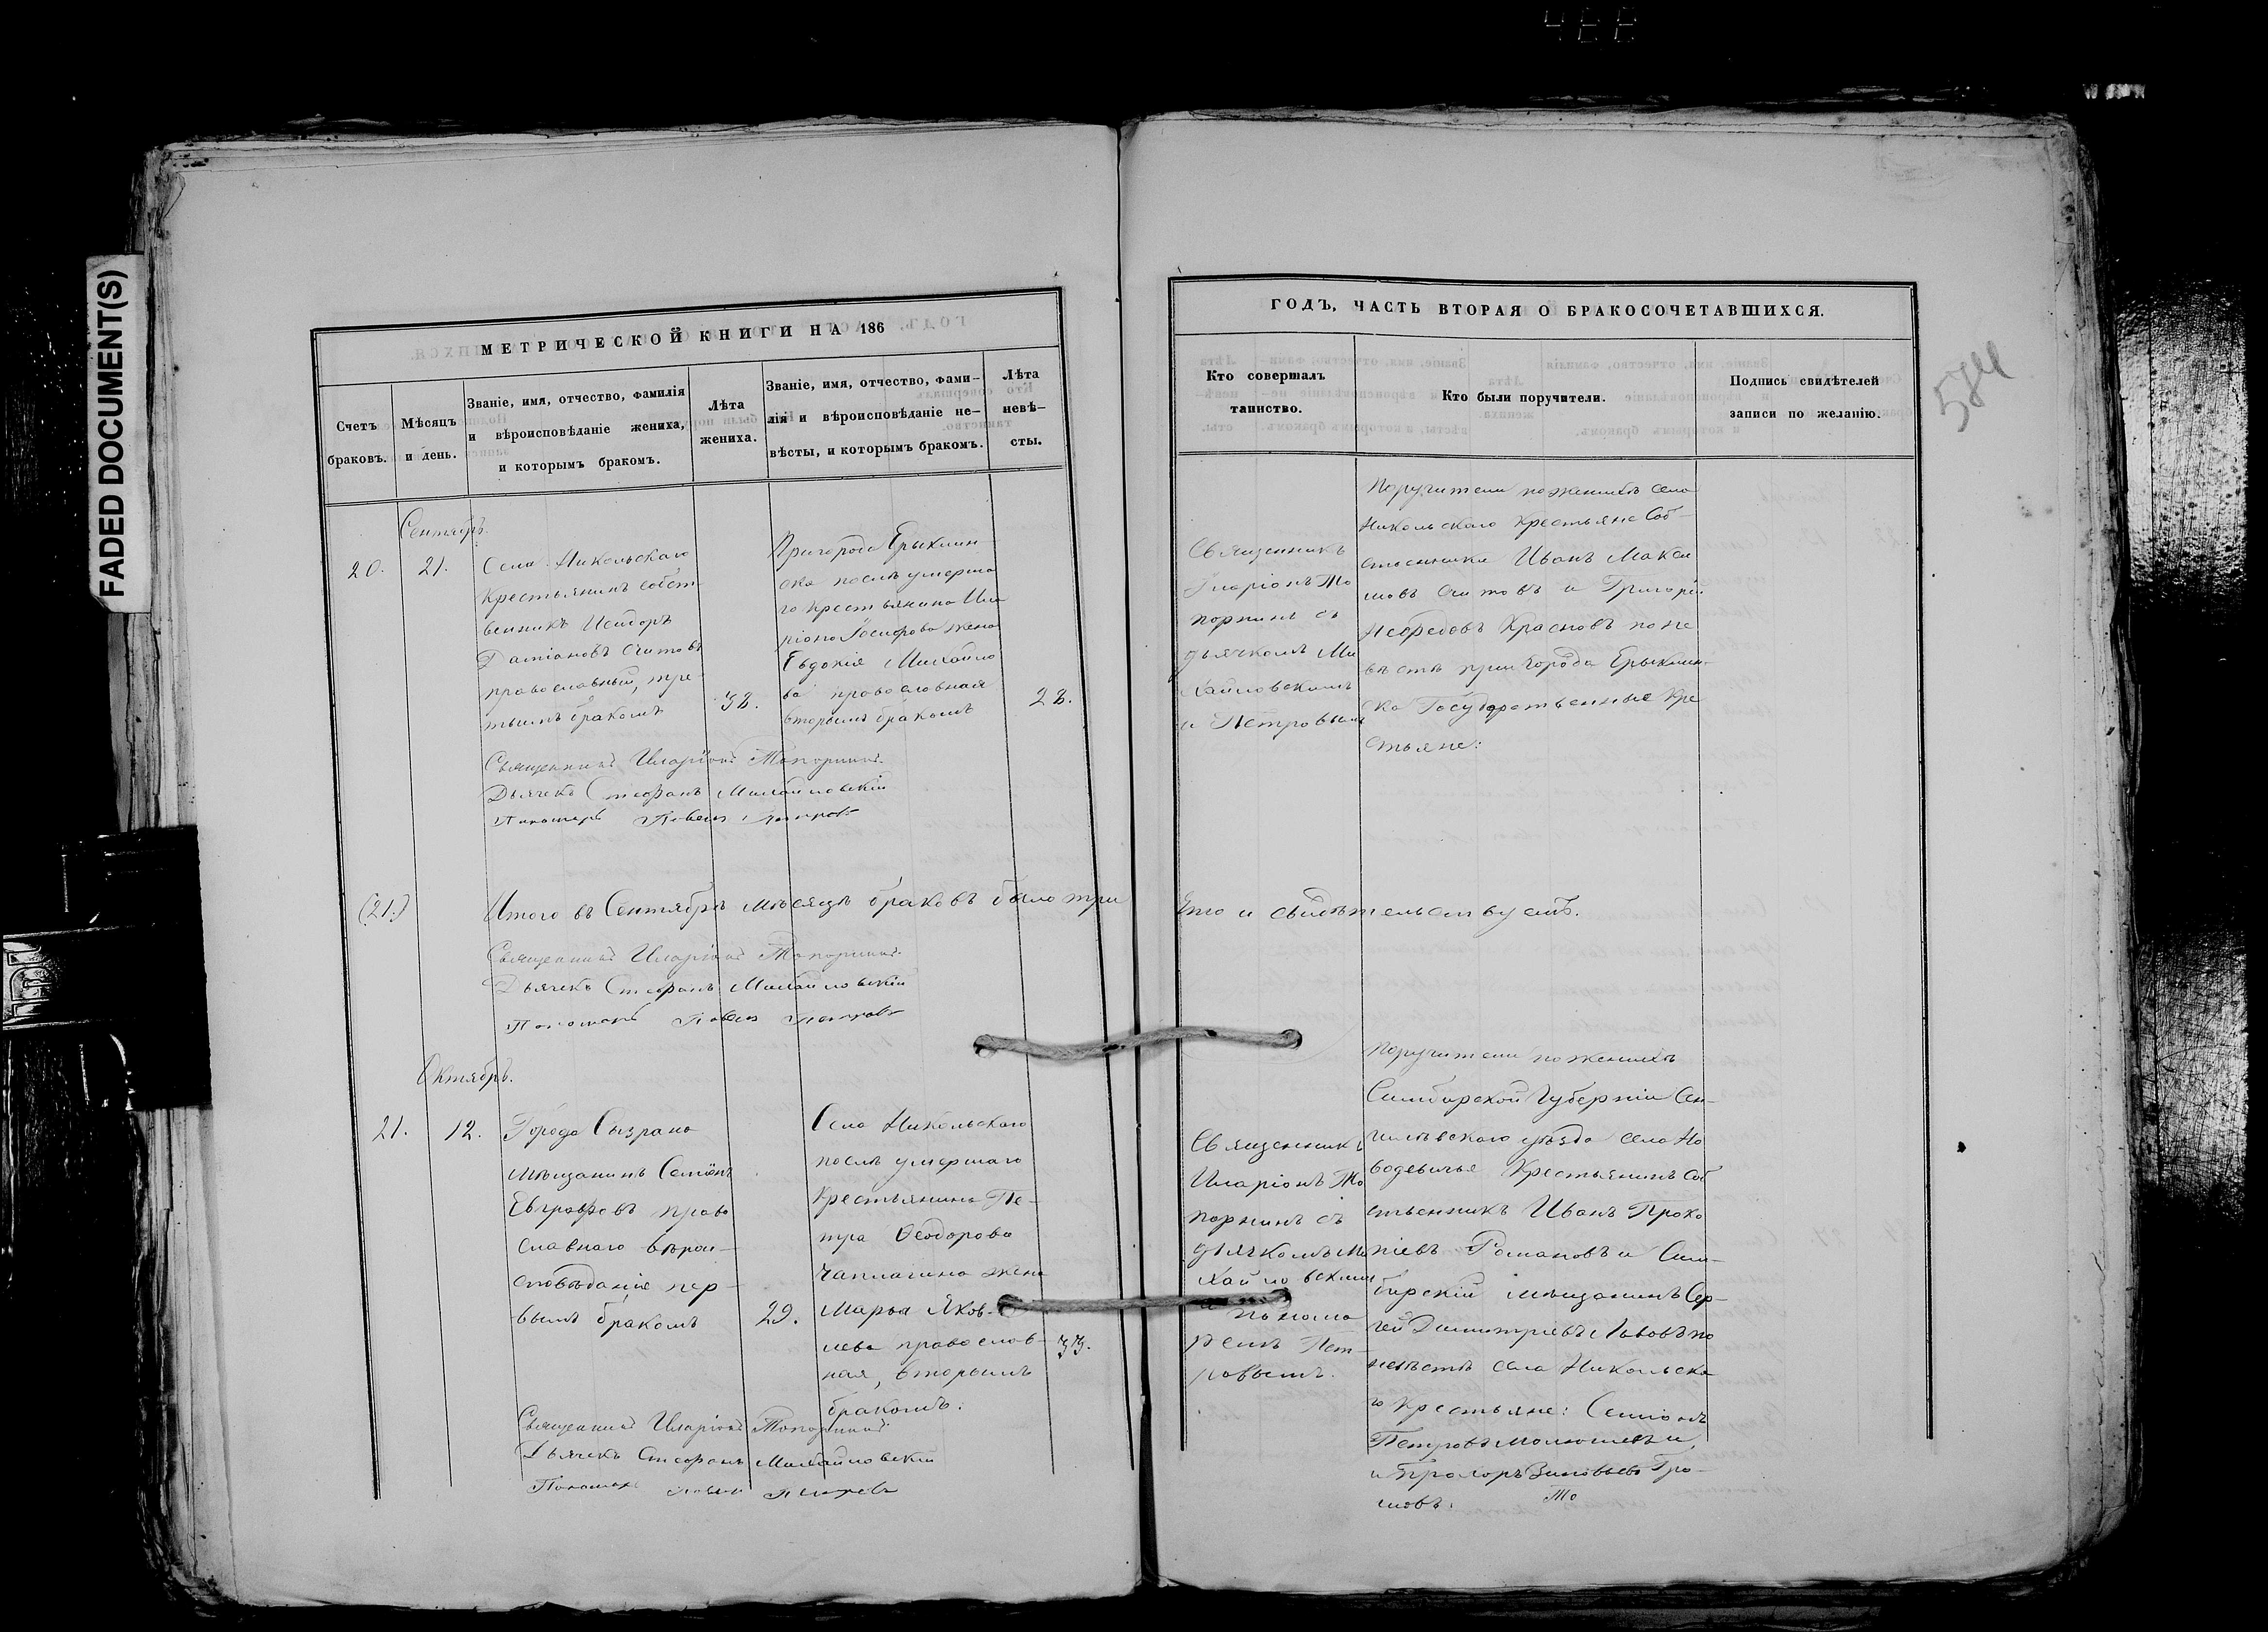 FADED DOCUMENT(S)
МЕТРИЧЕСКОЙ КНИГИ НА 186
Счетъ браковъ.
Мѣсяцъ и день.
Званіе, имя, отчество, фамилія
и вѣроисповѣданіе жениха,
и которымъ бракомъ.
Лѣта
жениха.
Званіе, имя, отчество, фами-
лія и вѣроисповѣданіе не-
вѣсты, и которымъ бракомъ.
Лѣта
невѣ-
сты.
Сентябрь.
20.
21.
Села Никольскаго
крестьянинъ собст-
венникъ Исидоръ
Даміановъ Сытовъ
православный, тре-
тьимъ бракомъ
38.
Пригорода Ерыклин
ска послѣ умерша
го крестьянина Ила
ріона Іосифова жена
Евдокія Михайло
ва православная
вторымъ бракомъ
28.
Священникъ Иларіонъ Топорнинъ.
Дьячекъ Стефанъ Михайловскій
Пономарь Павелъ Петровъ
(21.)
Итого въ Сентябрѣ мѣсяцѣ браковъ было три
Священникъ Иларіонъ Топорнинъ.
Дьячекъ Стефанъ Михайловскій
Пономарь Павелъ Петровъ
Октябрь.
21.
12.
Города Сызрана
мѣщанинъ Семёнъ
Евграфовъ право
славнаго вѣрои-
сповѣданія пер-
вымъ бракомъ
29.
Села Никольскаго
послѣ умершаго
крестьянина Пе-
тра Ѳеодорова
Чаплагина жена
Марья Яков-
лева православ-
ная, вторымъ
бракомъ.
33.
Священникъ Иларіонъ Топорнинъ.
Дьячекъ Стефанъ Михайловскій
Пономарь Павелъ Петровъ
ГОДЪ, ЧАСТЬ ВТОРАЯ О БРАКОСОЧЕТАВШИХСЯ.
574
Кто совершалъ
таинство.
Кто были поручители.
Подпись свидѣтелей
записи по желанію.
Священникъ
Иларіонъ То
порнинъ съ
дьячкомъ Ми
хайловскимъ
и Петровымъ
Поручители по женихѣ села
Никольскаго Крестьяне Соб-
ственники Иванъ Макси
мовъ Сытовъ и Григорій
Нефедовъ Красновъ по не
вѣстѣ пригорода Ерыклин-
ска Государственные Кре
стьяне:
что и свидѣтельствуемъ.
Священникъ
Иларіонъ То
порнинъ съ
дьячкомъ Ми
хайловскимъ
и понома
ремъ Пет-
ровымъ.
Поручители по женихѣ
Симбирской Губерніи Сен-
гилѣевскаго уѣзда села Но
водевичья Крестьянинъ Соб
ственникъ Иванъ Проко
піевъ Романовъ и Сим-
бирскій мѣщанинъ Сер-
гей Димитріевъ Львовъ по
невѣстѣ села Никольска
го крестьяне: Симіонъ
Петровъ
и Прохоръ Зиновьевъ Гро-
мовъ.
То